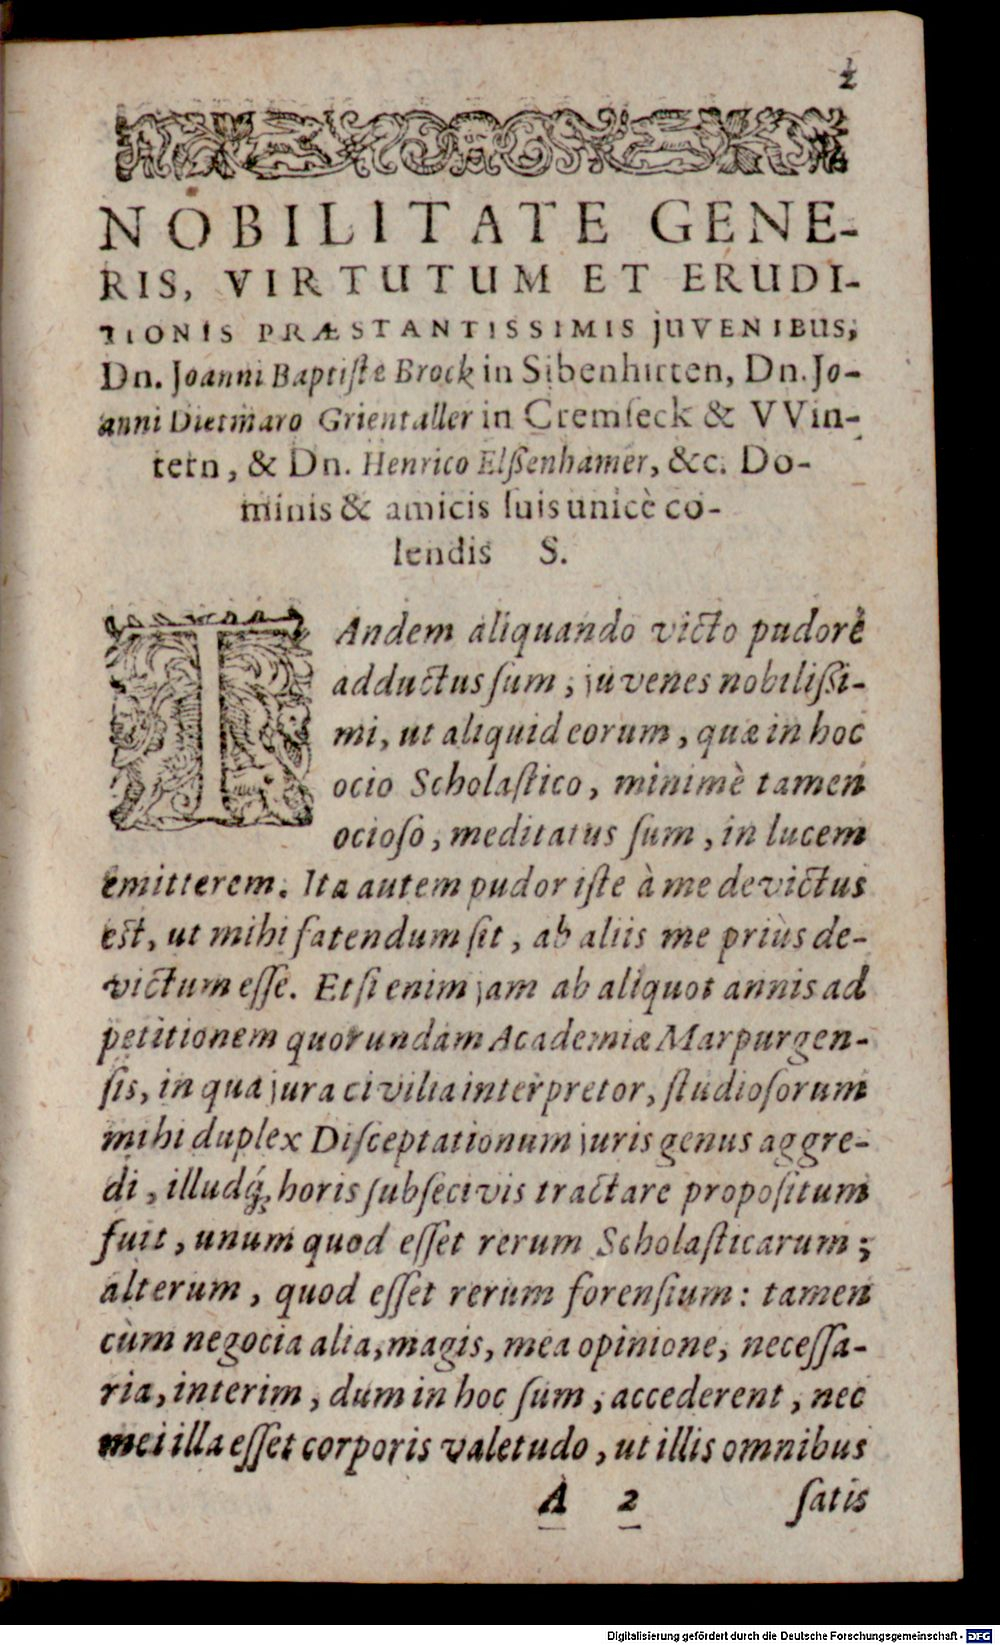 2
NOBILITATE GENE-
RIS, VIRTUTUM ET ERUDI-
TIONIS PRÆSTANTISSIMIS JUVENIBUS,
Dn. Joanni Baptiſtæ Brock in Sibenhirten, Dn. Jo-
anni Dietmaro Grientaller in Cremſeck & VVin-
tern, & Dn. Henrico Elſsenhamer, &c. Do-
minis & amicis ſuis unicè co-
lendis S.
TAndem aliquando victo pudore
adductus ſum, juvenes nobiliſsi-
mi, ut aliquid eorum, quæ in hoc
ocio Scholaſtico, minimè tamen
ocioſo, meditatus ſum, in lucem
emitterem. Ita autem pudor iſte à me devictus
eſt, ut mihi fatendum ſit, ab aliis me priùs de-
victum eſſe. Etſi enim jam ab aliquot annis ad
petitionem quorundam Academiæ Marpurgen-
ſis, in qua jura civilia interpretor, ſtudioſorum
mihi duplex Diſceptationum juris genus aggre-
di, illudq́; horis ſubſecivis tractare propoſitum
fuit, unum quod eſſet rerum Scholaſticarum;
alterum, quod eſſet rerum forenſium: tamen
cùm negocia alia, magis, mea opinione, neceſſa-
ria, interim, dum in hoc ſum, accederent, nec
mei illa eſſet corporis valetudo, ut illis omnibus
A 2 ſatis
Digitalisierung gefördert durch die Deutsche Forschungsgemeinschaft - DFG